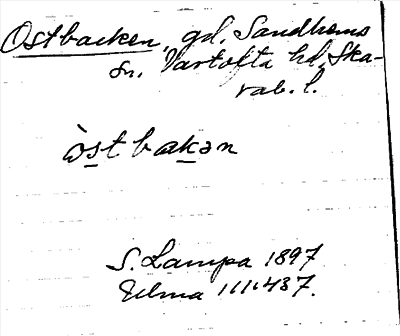 Ostbacken, gd. Sandhems
sn. Vartofta hd, Ska-
rab. l.
òstbakən
S. Lampa 1897
Elma 1111437.